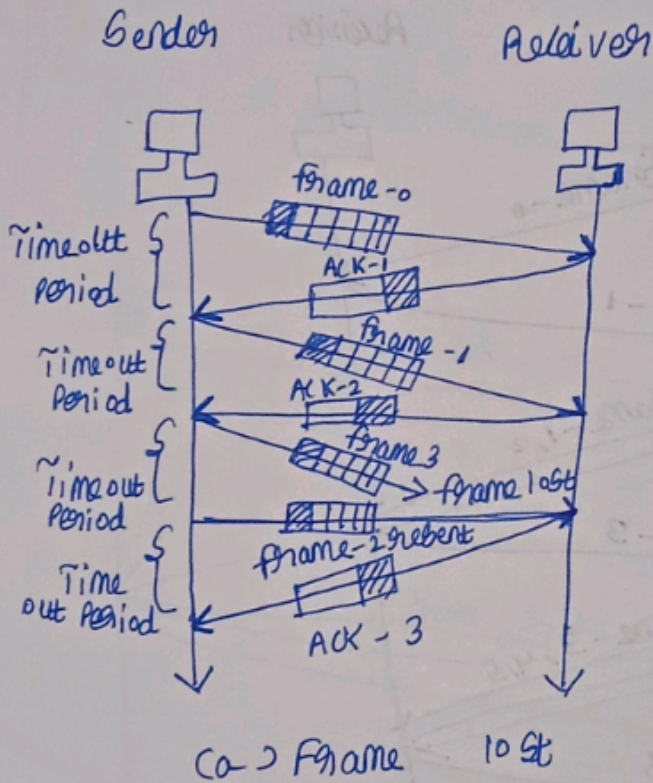 Sender Receiver
frame-0
Timeout
Period
ACK-1
frame-1
Timeout
Period
ACK-2
frame 3
frame lost
Timeout
Period
frame-2 resent
Time
out Period
ACK - 3
(a) Frame lost